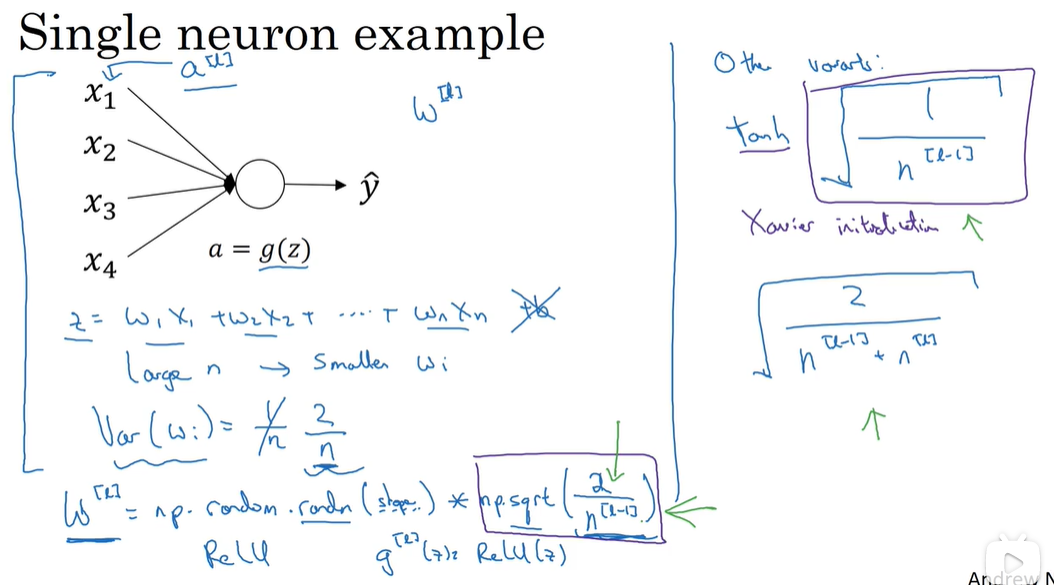 Single neuron example
a^[l]
x₁
x₂
x₃
x₄
ŷ
a = g(z)
w^[l]
z = w₁x₁ + w₂x₂ + ..... + wₙxₙ +b
Large n → Smaller wᵢ
Var(wᵢ) = 1/n 2/n
W^[l] = np.random.randn(shape) * np.sqrt(2/n^[l-1])
ReLU g^[l](z) = ReLU(z)
Other variants:
tanh √(1/n^[l-1])
Xavier initialization ↑
√(2/(n^[l-1] + n^[l]))
↑
Andrew N